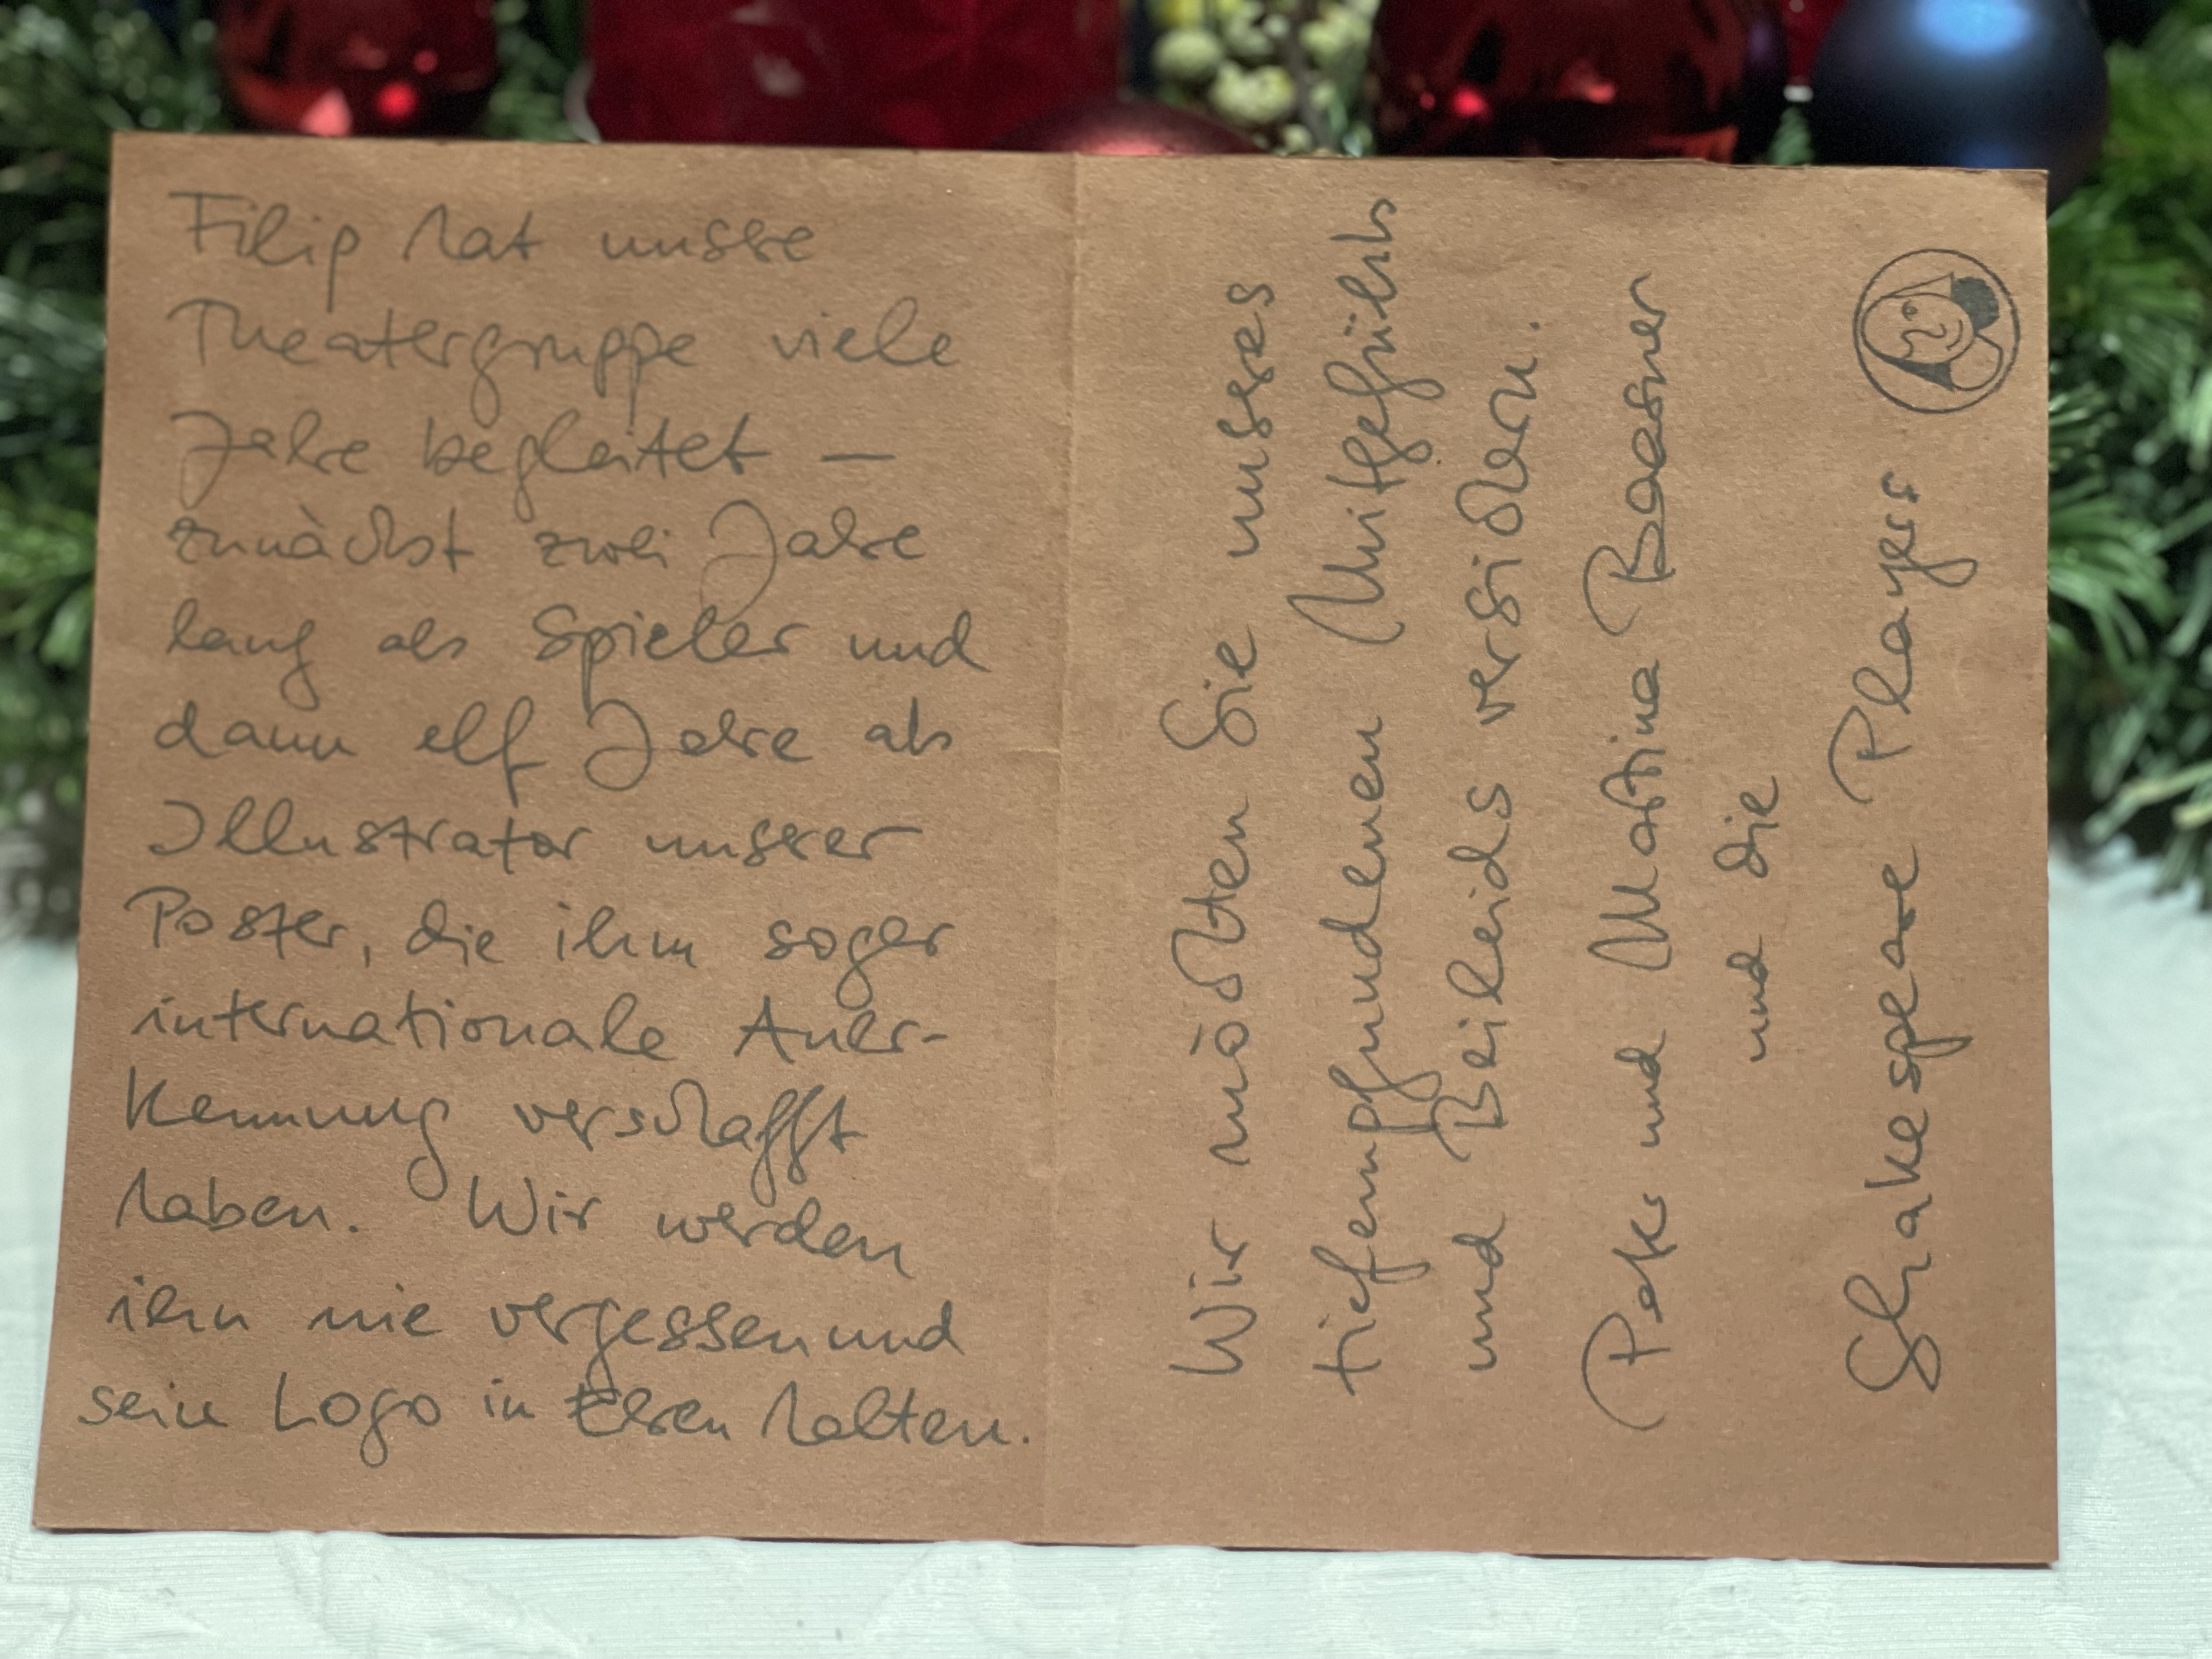 Filip hat unsere
Theatergruppe viele
Jahre begleitet —
zunächst zwei Jahre
lang als Spieler und
dann elf Jahre als
Illustrator unserer
Poster, die ihm sogar
internationale Aner-
kennung verschafft
haben. Wir werden
ihn nie vergessen und
sein Logo in Ehren halten.
Wir möchten Sie unseres
tiefempfundenen Mitgefühls
und Beileids versichern.
Peter und Martina Baasner
und die
Shakespeare Players